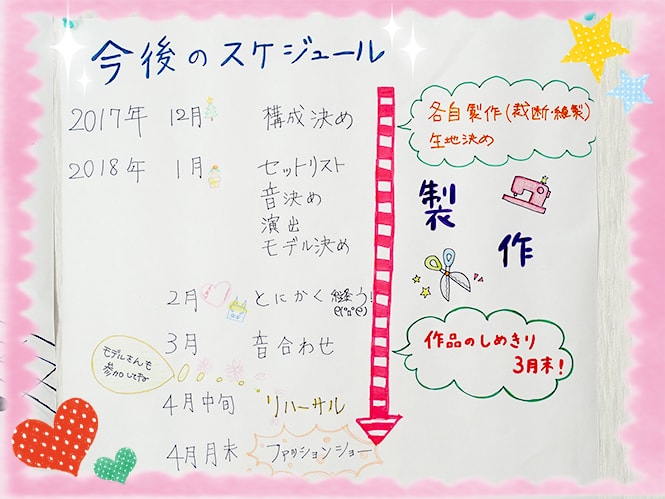 今後のスケジュール
2017年 12月 構成決め
2018年 1月 セットリスト
音決め
演出
モデル決め
2月 とにかく縫う!
3月 音合わせ
モデルさんも
参加してね
4月中旬 リハーサル
4月月末 ファッションショー
各自製作(裁断・縫製)
生地決め
製作
作品のしめきり
3月末!